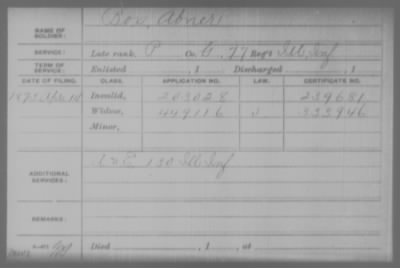 Box, Abner
NAME OF SOLDIER:
SERVICE: Late rank, P Co. G, 77 Reg't Ill Inf
TERM OF SERVICE: Enlisted , 1 Discharged , 1
DATE OF FILING. CLASS. APPLICATION NO. LAW. CERTIFICATE NO.
1875 Apr 14 Invalid, 203028 239681
Widow, 449116 333946
Minor,
ADDITIONAL SERVICES: 130 Ill Inf
REMARKS:
Died , 1 , at